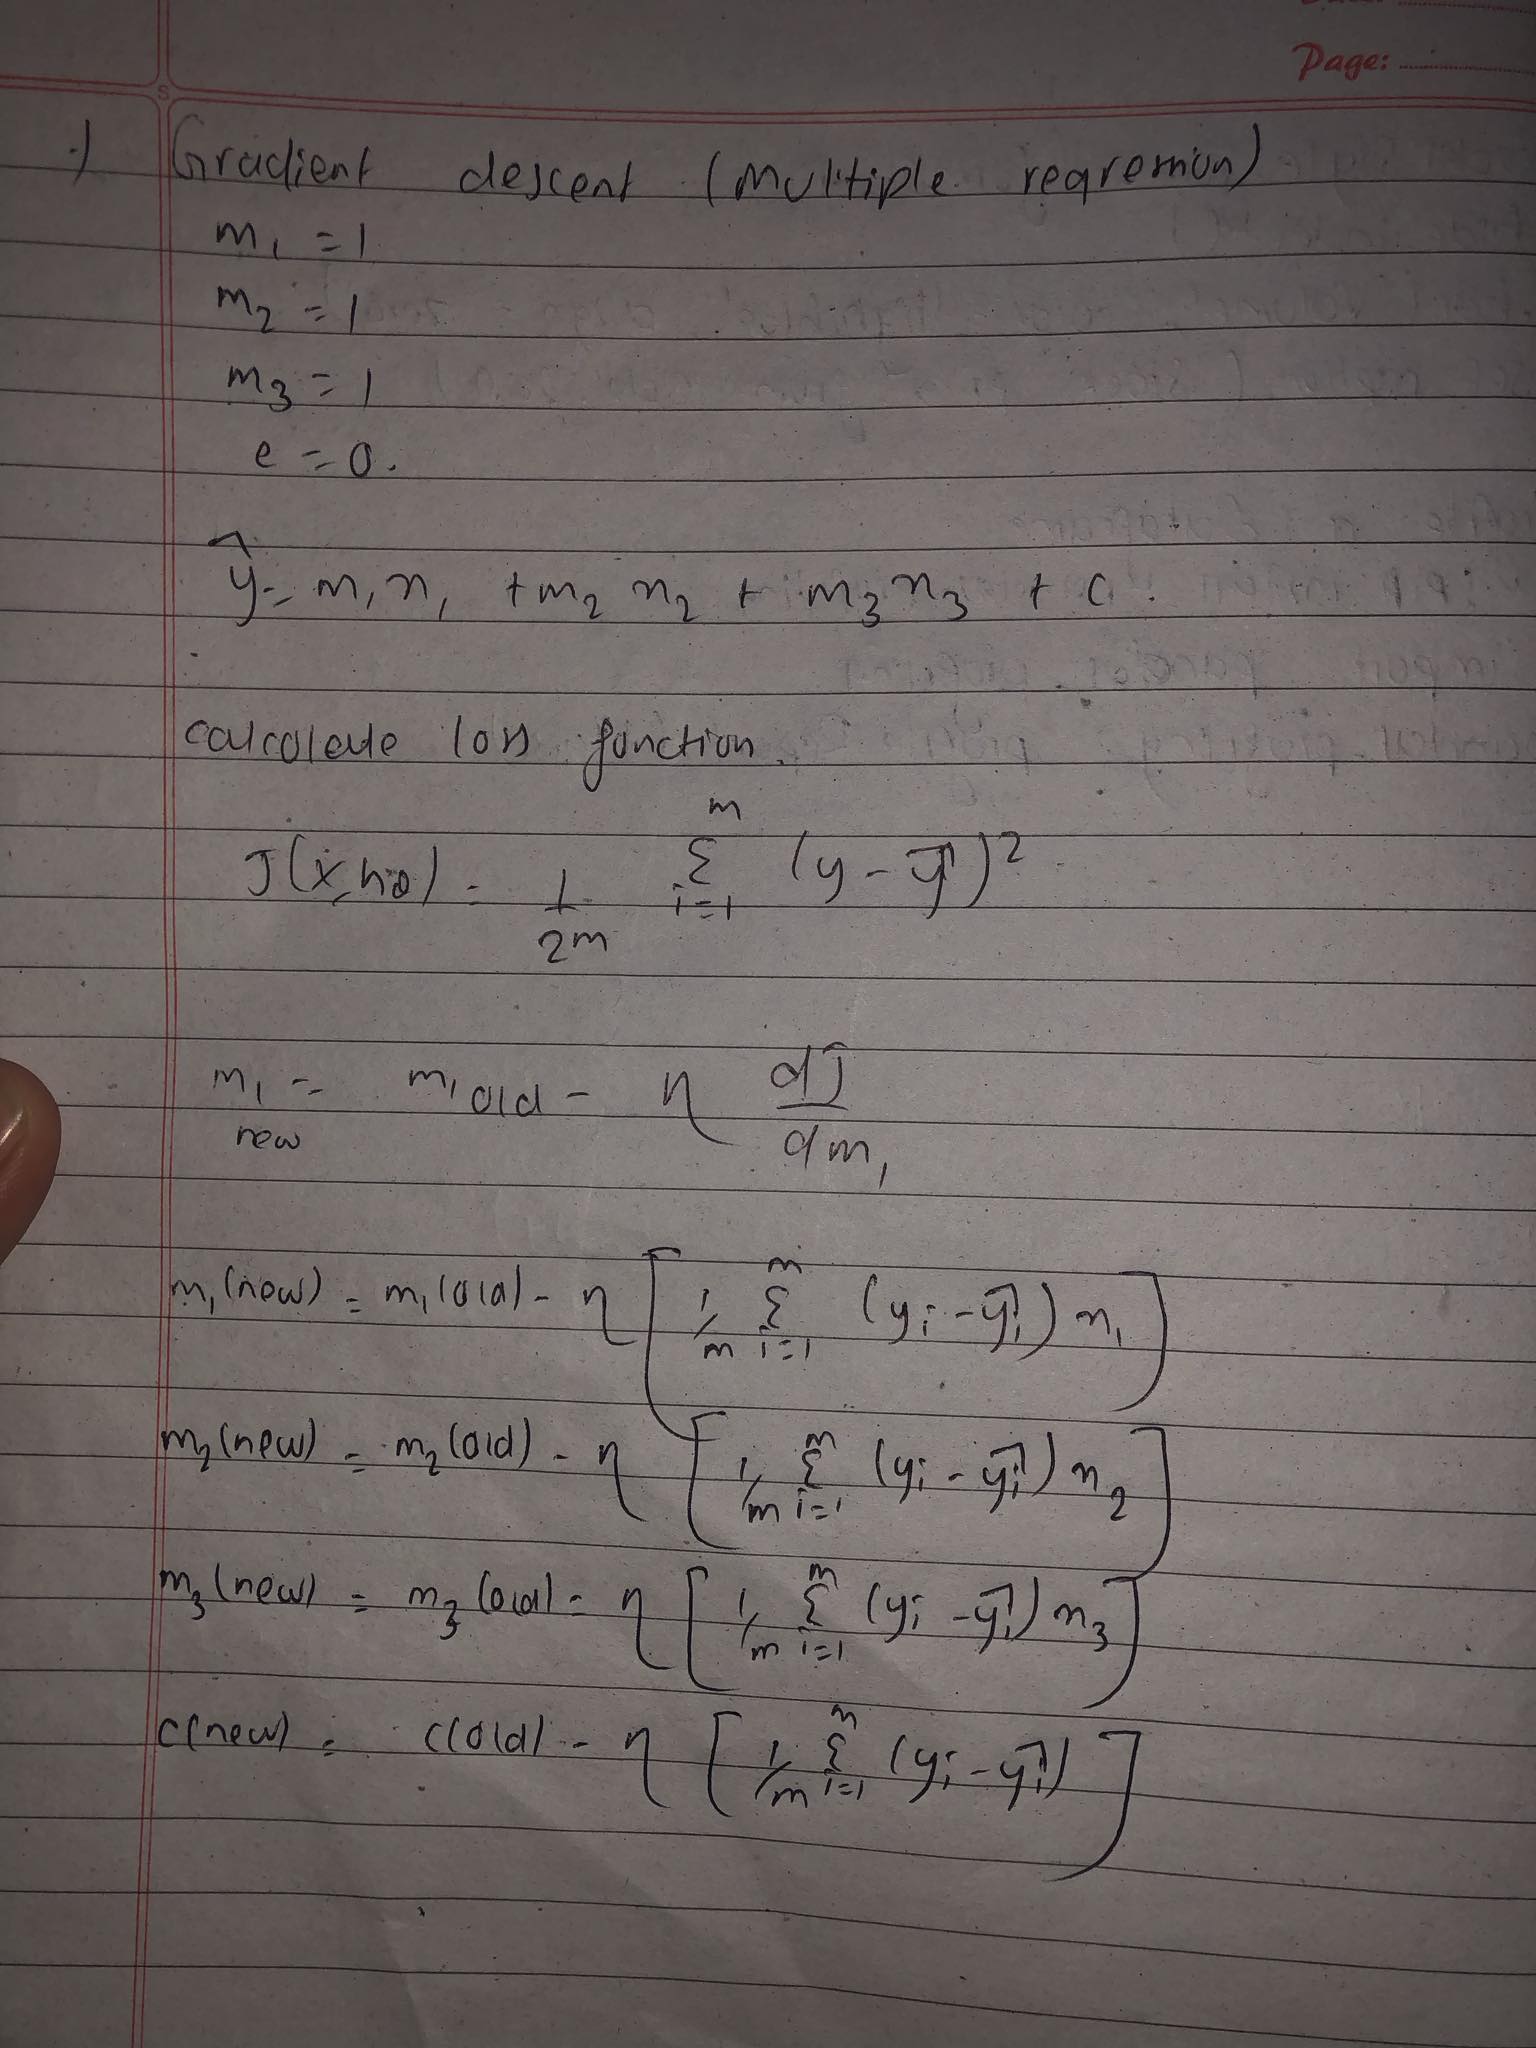 Page:
.) Gradient descent (Multiple regression)
m₁ = 1
m₂ = 1
m₃ = 1
c = 0.
ŷ = m₁x₁ + m₂x₂ + m₃x₃ + c.
calculate loss function.
J(x, hθ) = 1/2m Σᵢ₌₁ᵐ (y - ŷ)²
m₁ new = m₁ old - η dJ/dm₁
m₁(new) = m₁(old) - η [1/m Σᵢ₌₁ᵐ (yᵢ - ŷᵢ) x₁]
m₂(new) = m₂(old) - η [1/m Σᵢ₌₁ᵐ (yᵢ - ŷᵢ) x₂]
m₃(new) = m₃(old) - η [1/m Σᵢ₌₁ᵐ (yᵢ - ŷᵢ) x₃]
c(new) = c(old) - η [1/m Σᵢ₌₁ᵐ (yᵢ - ŷᵢ)]